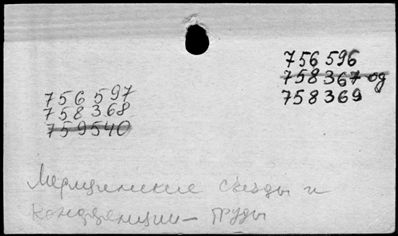 756 596
758 367 од
758 369
756 597
758 368
759540
Медицинские съезды и
конференции – труды